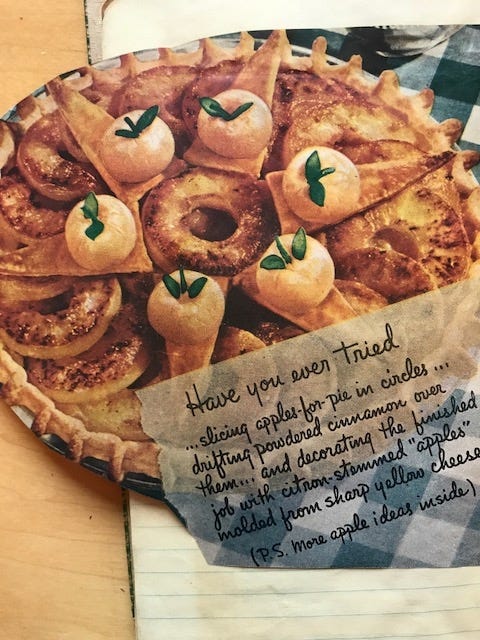 Have you ever Tried
...slicing apples-for-pie in circles...
drifting powdered cinnamon over
them... and decorating the finished
job with citron-stemmed "apples"
molded from sharp yellow cheese
(P.S. More apple ideas inside)